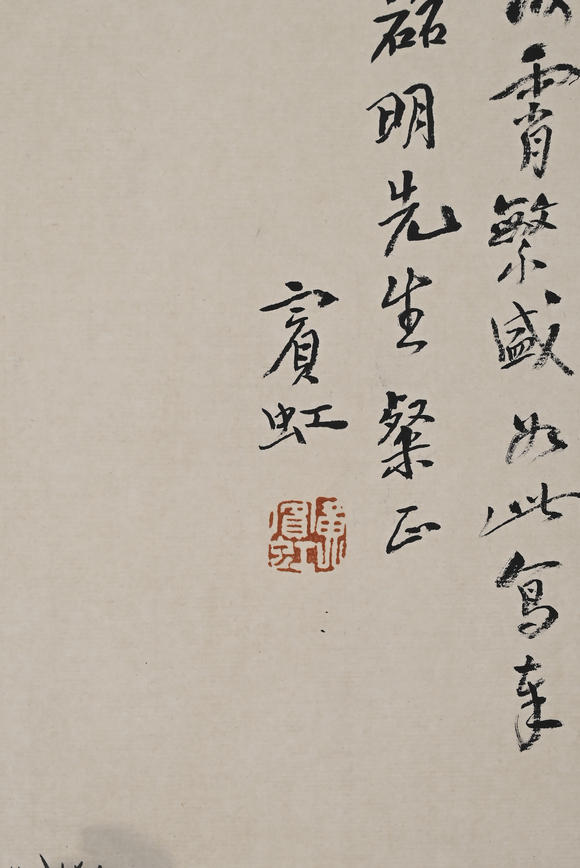 霄繁盛如此寫奉
磊明先生粲正
賓虹
黃賓虹